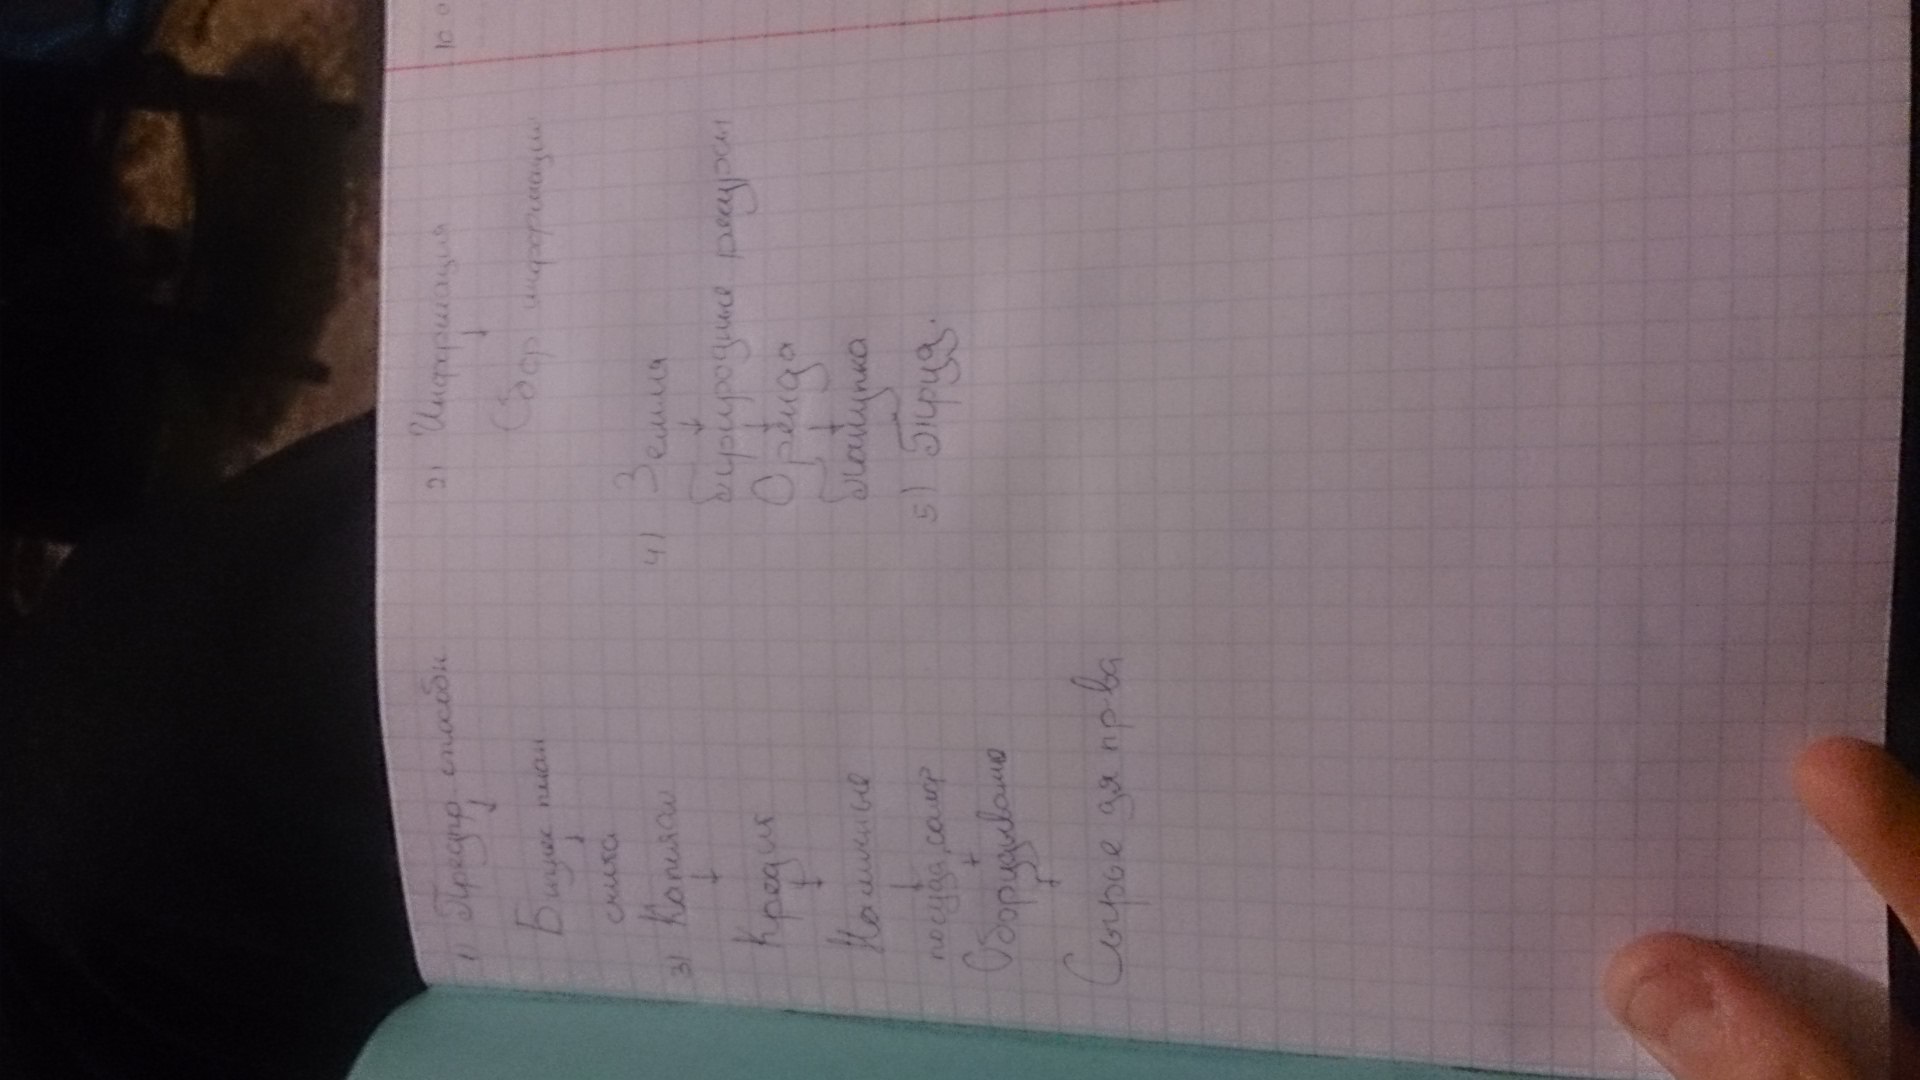 1) Предпр. способн
Бизнес план
смета
2) Информация
Сбор информации
3) Капитал
Кредит
Наличные
посуда,
Оборудование
Сырье для пр-ва
4) Земля
Природные ресурсы
Оренда
Покупка
5) Труд.